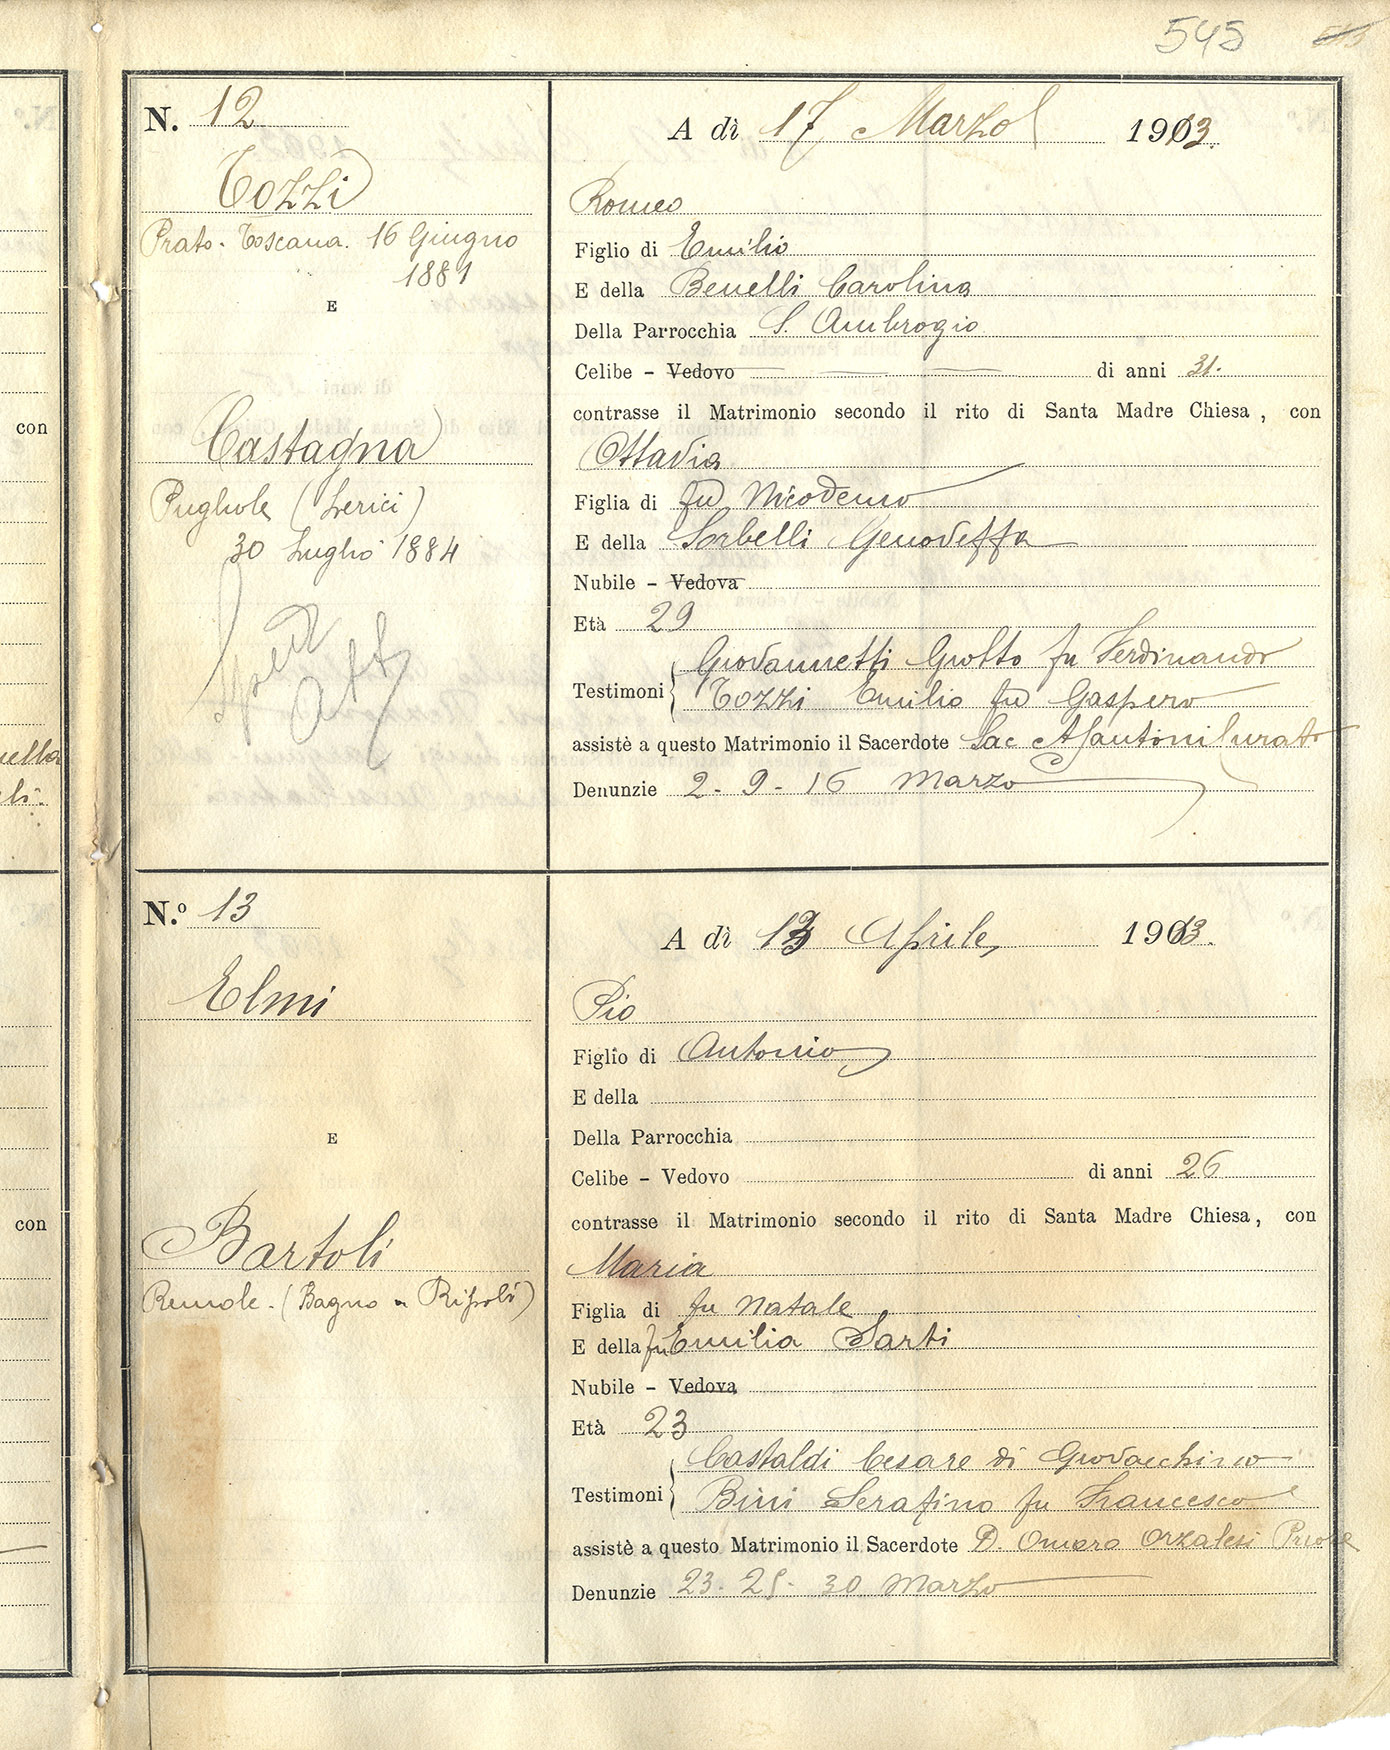 545
N. 12
Tozzi
Prato - Toscana. 16 Giugno
1881
E
Castagna
Pugliole (Lerici)
30 Luglio 1884
A dì 17 Marzo 1913.
Romeo
Figlio di Emilio
E della Benelli Carolina
Della Parrocchia S. Ambrogio
Celibe - Vedovo di anni 31.
contrasse il Matrimonio secondo il rito di Santa Madre Chiesa, con
Ottavia
Figlia di fu Nicodemo
E della Sorbelli Genoveffa
Nubile - Vedova
Età 29
Giovannetti Giotto fu Ferdinando
Testimoni Tozzi Emilio fu Gaspero
assistè a questo Matrimonio il Sacerdote Sac Curato
Denunzie 2 - 9 - 16 Marzo
N.º 13
Elmi
E
Bartoli
Remole - (Bagno a Ripoli)
A dì 13 Aprile, 1913.
Pio
Figlio di Antonio
E della
Della Parrocchia
Celibe - Vedovo di anni 26
contrasse il Matrimonio secondo il rito di Santa Madre Chiesa, con
Maria
Figlia di fu Natale
E della fu Emilia Sarti
Nubile - Vedova
Età 23
Castaldi Cesare di Giovacchino
Testimoni Bini Serafino fu Francesco
assistè a questo Matrimonio il Sacerdote D. Omero Orzalesi Priore
Denunzie 23 - 25 - 30 Marzo
con
con